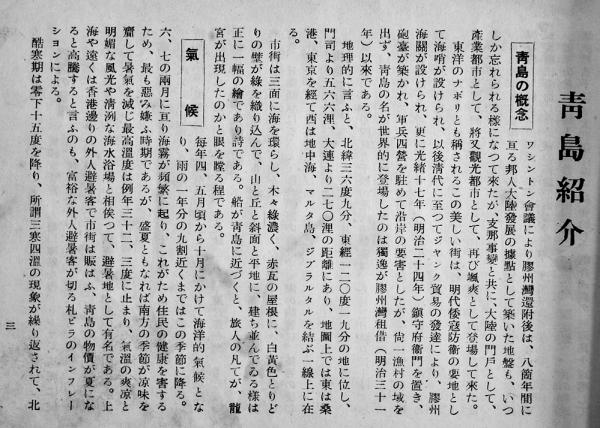 青島紹介
青島の概念
ワシントン會議により膠州灣還附後は、八箇年間に
亘る邦人大陸發展の據點として築いた地盤も、いつ
しか忘れられる樣になつて來たが、支那事變と共に、大陸の門戸として、
產業都市として、將又觀光都市として、再び颯爽として登場して來た。
東洋のナポリとも稱されるこの美しい街は、明代倭寇防衞の要地とし
て海哨が設けられ、以後清代に至つてジヤンク貿易の發達により、膠州
海關が設けられ、更に光緒十七年（明治二十四年）鎭守府衙門を置き、
砲臺が築かれ、軍兵四營を駐めて沿岸の要害としたが、尙一漁村の域を
出ず、青島の名が世界的に登場したのは獨逸が膠州灣租借（明治三十一
年）以來である。
地理的に言ふと、北緯三六度九分、東經一二〇度一九分の地に位し、
門司より五六六浬、大連より二七〇浬の距離にあり、地圖上では東は桑
港、東京を經て西は地中海、マルタ島、ジブラルタルを結ぶ一線上に在
る。
市街は三面に海を環らし、木々綠濃く、赤瓦の屋根に、白黃色とりど
りの壁が綠を織り込んで、山と丘と斜面と平地に、建ち並んでゐる樣は
正に一幅の繪であり詩である。船が青島に近づくと、旅人の凡てが、龍
宮が出現したのかと眼を瞠る程である。
氣候
每年四、五月頃から十月にかけて海洋的氣候とな
り、雨の一年分の九割近くまではこの季節に降る。
六、七の兩月に亘り海霧が頻繁に起り、これがため住民の健康を害する
ため、最も惡み嫌ふ時期であるが、盛夏ともなれば南方の季節が凉味を
齎して暑氣を減じ最高溫度は例年三十二、三度に止まり、氣溫の爽凉と
明媚な風光や淸冽な海水浴場と相俟つて、避暑地として有名である。上
海や遠くは香港邊りの外人避暑客で市街は賑はふ、青島の物價が夏にな
ると高騰すると言ふのも、富裕な外人避暑客が切る札ビラのインフレー
シヨンによる。
酷寒期は零下十五度を降り、所謂三寒四溫の現象が繰り返されて、北
三